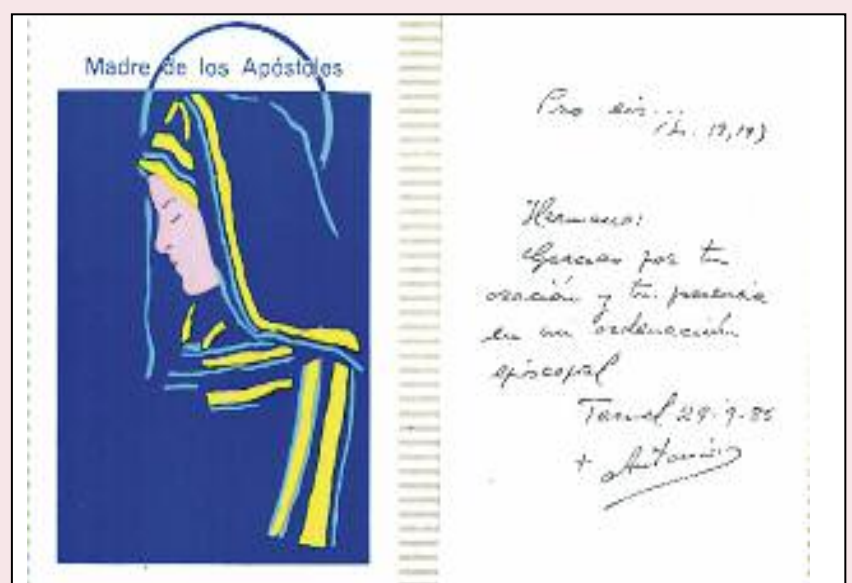 Madre de los Apóstoles
Pro eis...
(Jn. 17,19)
Hermano:
Gracias por tu
oración y tu presencia
en mi ordenación
episcopal
Teruel 29-9-85
+ Antonio